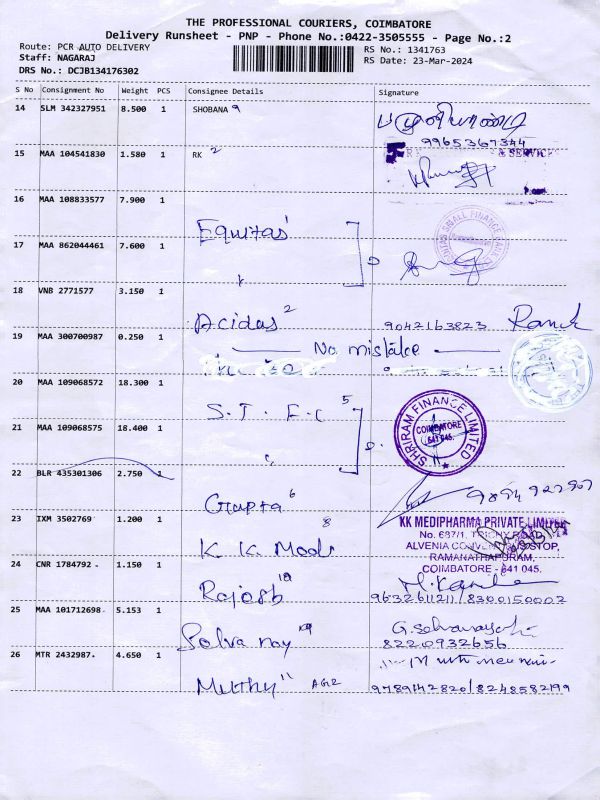 THE PROFESSIONAL COURIERS, COIMBATORE
Delivery Runsheet - PNP - Phone No.:0422-3505555 - Page No.:2
Route: PCR AUTO DELIVERY
RS No.: 1341763
Staff: NAGARAJ
RS Date: 23-Mar-2024
DRS No.: DCJB134176302
S No Consignment No Weight PCS Consignee Details Signature
14 SLM 342327951 8.500 1 SHOBANA
9965367344
15 MAA 104541830 1.580 1 RK 2
& SERVICE
16 MAA 108833577 7.900 1
Equitas
EQUITAS SMALL FINANCE BANK
17 MAA 862044461 7.600 1
18 VNB 2771577 3.150 1
Acidas 2 9042163823
19 MAA 300700987 0.250 1
No mistake
20 MAA 109068572 18.300 1
S.T.F.C 5
SHRIRAM FINANCE LIMITED
COIMBATORE
641 045.
21 MAA 109068575 18.400 1
22 BLR 435301306 2.750 1
Gupta 6
23 IXM 3502769 1.200 1
K K Modi 8
KK MEDIPHARMA PRIVATE LIMITED
No. 687/1, TRICHY ROAD,
RAMANATHAPURAM,
COIMBATORE - 641 045.
24 CNR 1784792 1.150 1
9632611211/8300150002
25 MAA 101712698 5.153 1
Selva ray
8220932656
26 MTR 2432987 4.650 1
Muthy 11
9789142820/8248582199